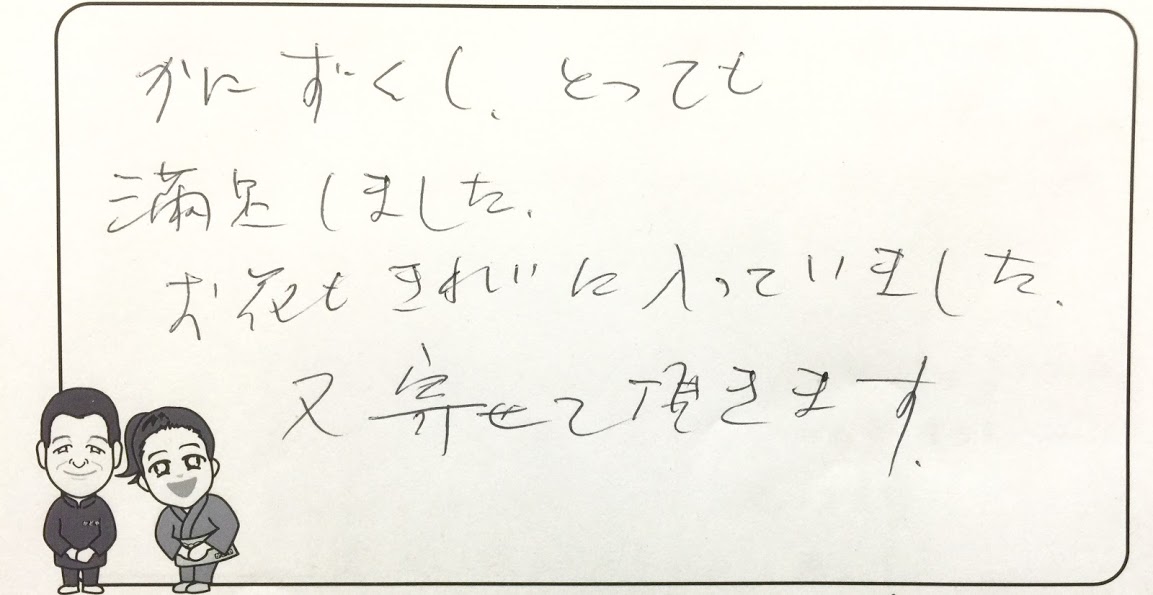 かにずくし、とっても
満足しました。
お花もきれいに入っていました。
又寄せて頂きます。